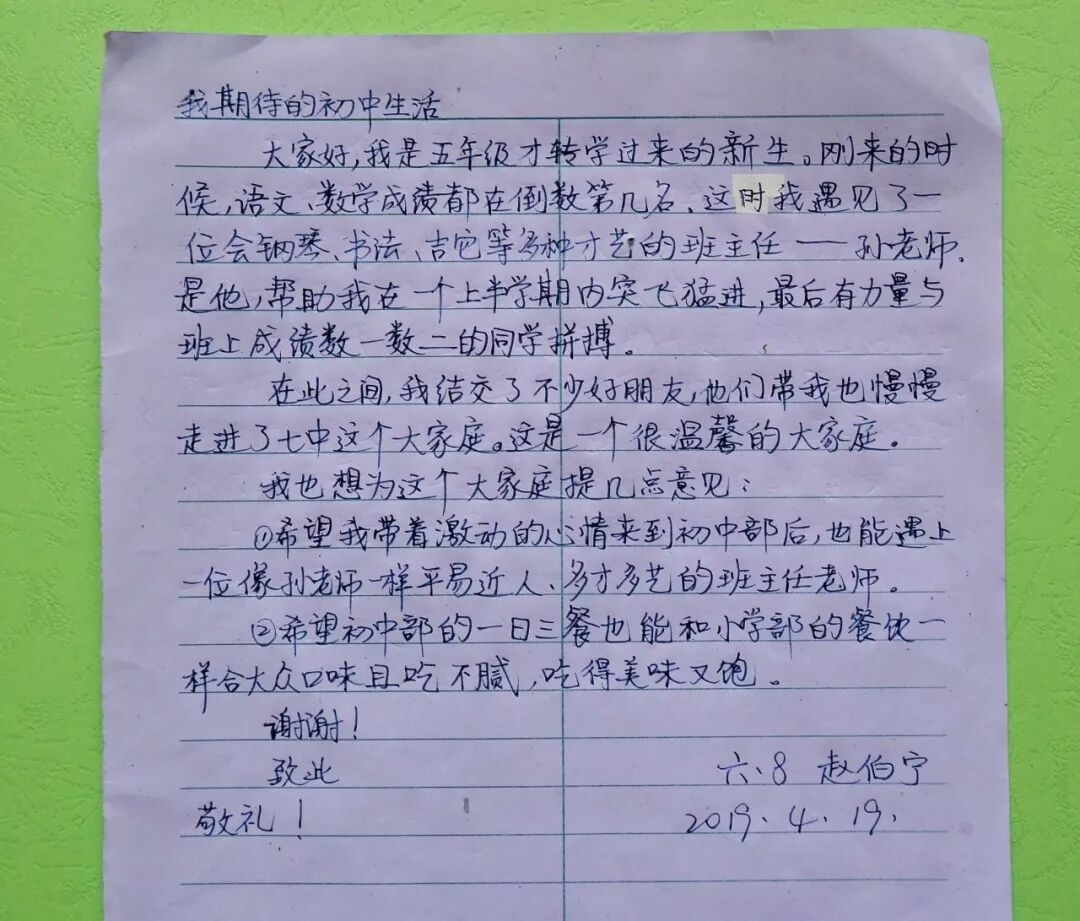 我期待的初中生活
大家好,我是五年级才转学过来的新生。刚来的时
候,语文、数学成绩都在倒数第几名、这时我遇见了一
位会钢琴、书法、吉它等多种才艺的班主任——孙老师.
是他,帮助我在一个上半学期内突飞猛进,最后有力量与
班上成绩数一数二的同学拼搏。
在此之间,我结交了不少好朋友,他们带我也慢慢
走进了七中这个大家庭。这是一个很温馨的大家庭.
我也想为这个大家庭提几点意见:
①希望我带着激动的心情来到初中部后,也能遇上
一位像孙老师一样平易近人、多才多艺的班主任老师。
②希望初中部的一日三餐也能和小学部的餐饮一
样合大众口味且吃不腻,吃得美味又饱。
谢谢!
致此 六.8 赵伯宁
敬礼! 2019.4.19.